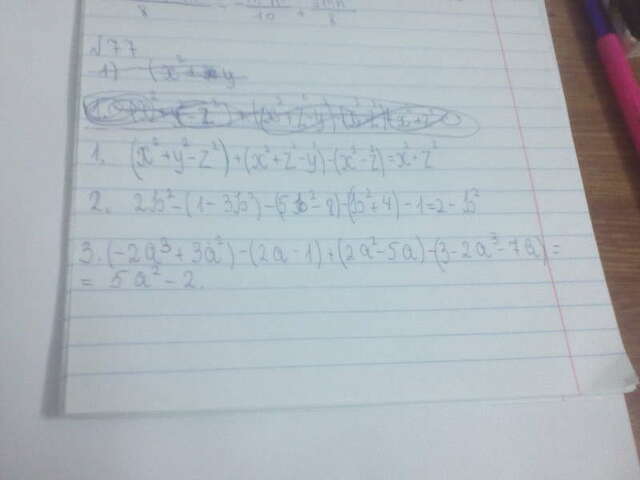 8 10 8
√77
1) (x² + y
1. (x²+y²-z²)+(x²+z²-y²)-(x²-z²)=x²+z²
2. 2b²-(1-3b²)-(5b²-8)-(b²+4)-1=2-b²
3. (-2a³+3a²)-(2a-1)+(2a²-5a)-(3-2a³-7a)=
= 5a²-2.